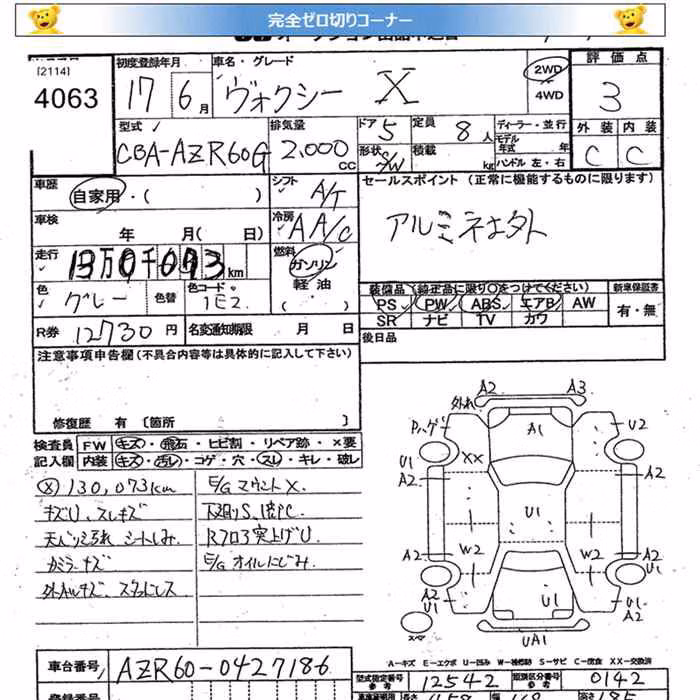 完全ゼロ切りコーナー
[2114]
4063
初度登録年月
17年 6月
車名・グレード
ヴォクシー X
2WD
4WD
評価点
3
外装 内装
C C
型式
CBA-AZR60G
排気量
2,000 CC
ドア 5
形状 S/W
定員 8人
積載 kg
ディーラー・並行
モデル年式 年式
ハンドル 左・右
車歴
自家用・( )
シフト
A/T
セールスポイント (正常に機能するものに限ります)
アルミ ネオ外
車検
年 月( 日)
冷房
AA/C
走行
13万0千073km
燃料
ガソリン
軽油
( )
色
グレー
色替
色コード
1E2
装備品(純正品に限り○をつけてください)
PS PW ABS エアB AW
SR ナビ TV カワ
新車保証書
有・無
R券 12730円
名変通知期限 月 日
後日品
注意事項申告欄(不具合内容等は具体的に記入して下さい)
修復歴 有 [箇所 ]
検査員記入欄
FW キズ・飛石・ヒビ割・リペア跡・×要
内装 キズ・汚レ・コゲ・穴・スレ・キレ・破レ
⊗ 130,073km
キズU、スレキズ
天バリ汚れ シートしみ
ガラ、キズ
外AWキズ、スタッドレス
E/GマウントX
下廻りS、C
Rフロア突上げU
E/Gオイルにじみ
A2 A3
外れ
Pハゲ
A1
U2
U1
A2
XX
A2
U1
A2
W2
W2
A2
A2
U1
U1
U1 A2
UA1
スペア
A-キズ E-エクボ U-凹み W-補修跡 S-サビ C-腐食 XX-交換済
車台番号 AZR60-0427186
型式指定番号 参考 12542
類別区分番号 参考 0142
登録番号
長さ
高さ 185